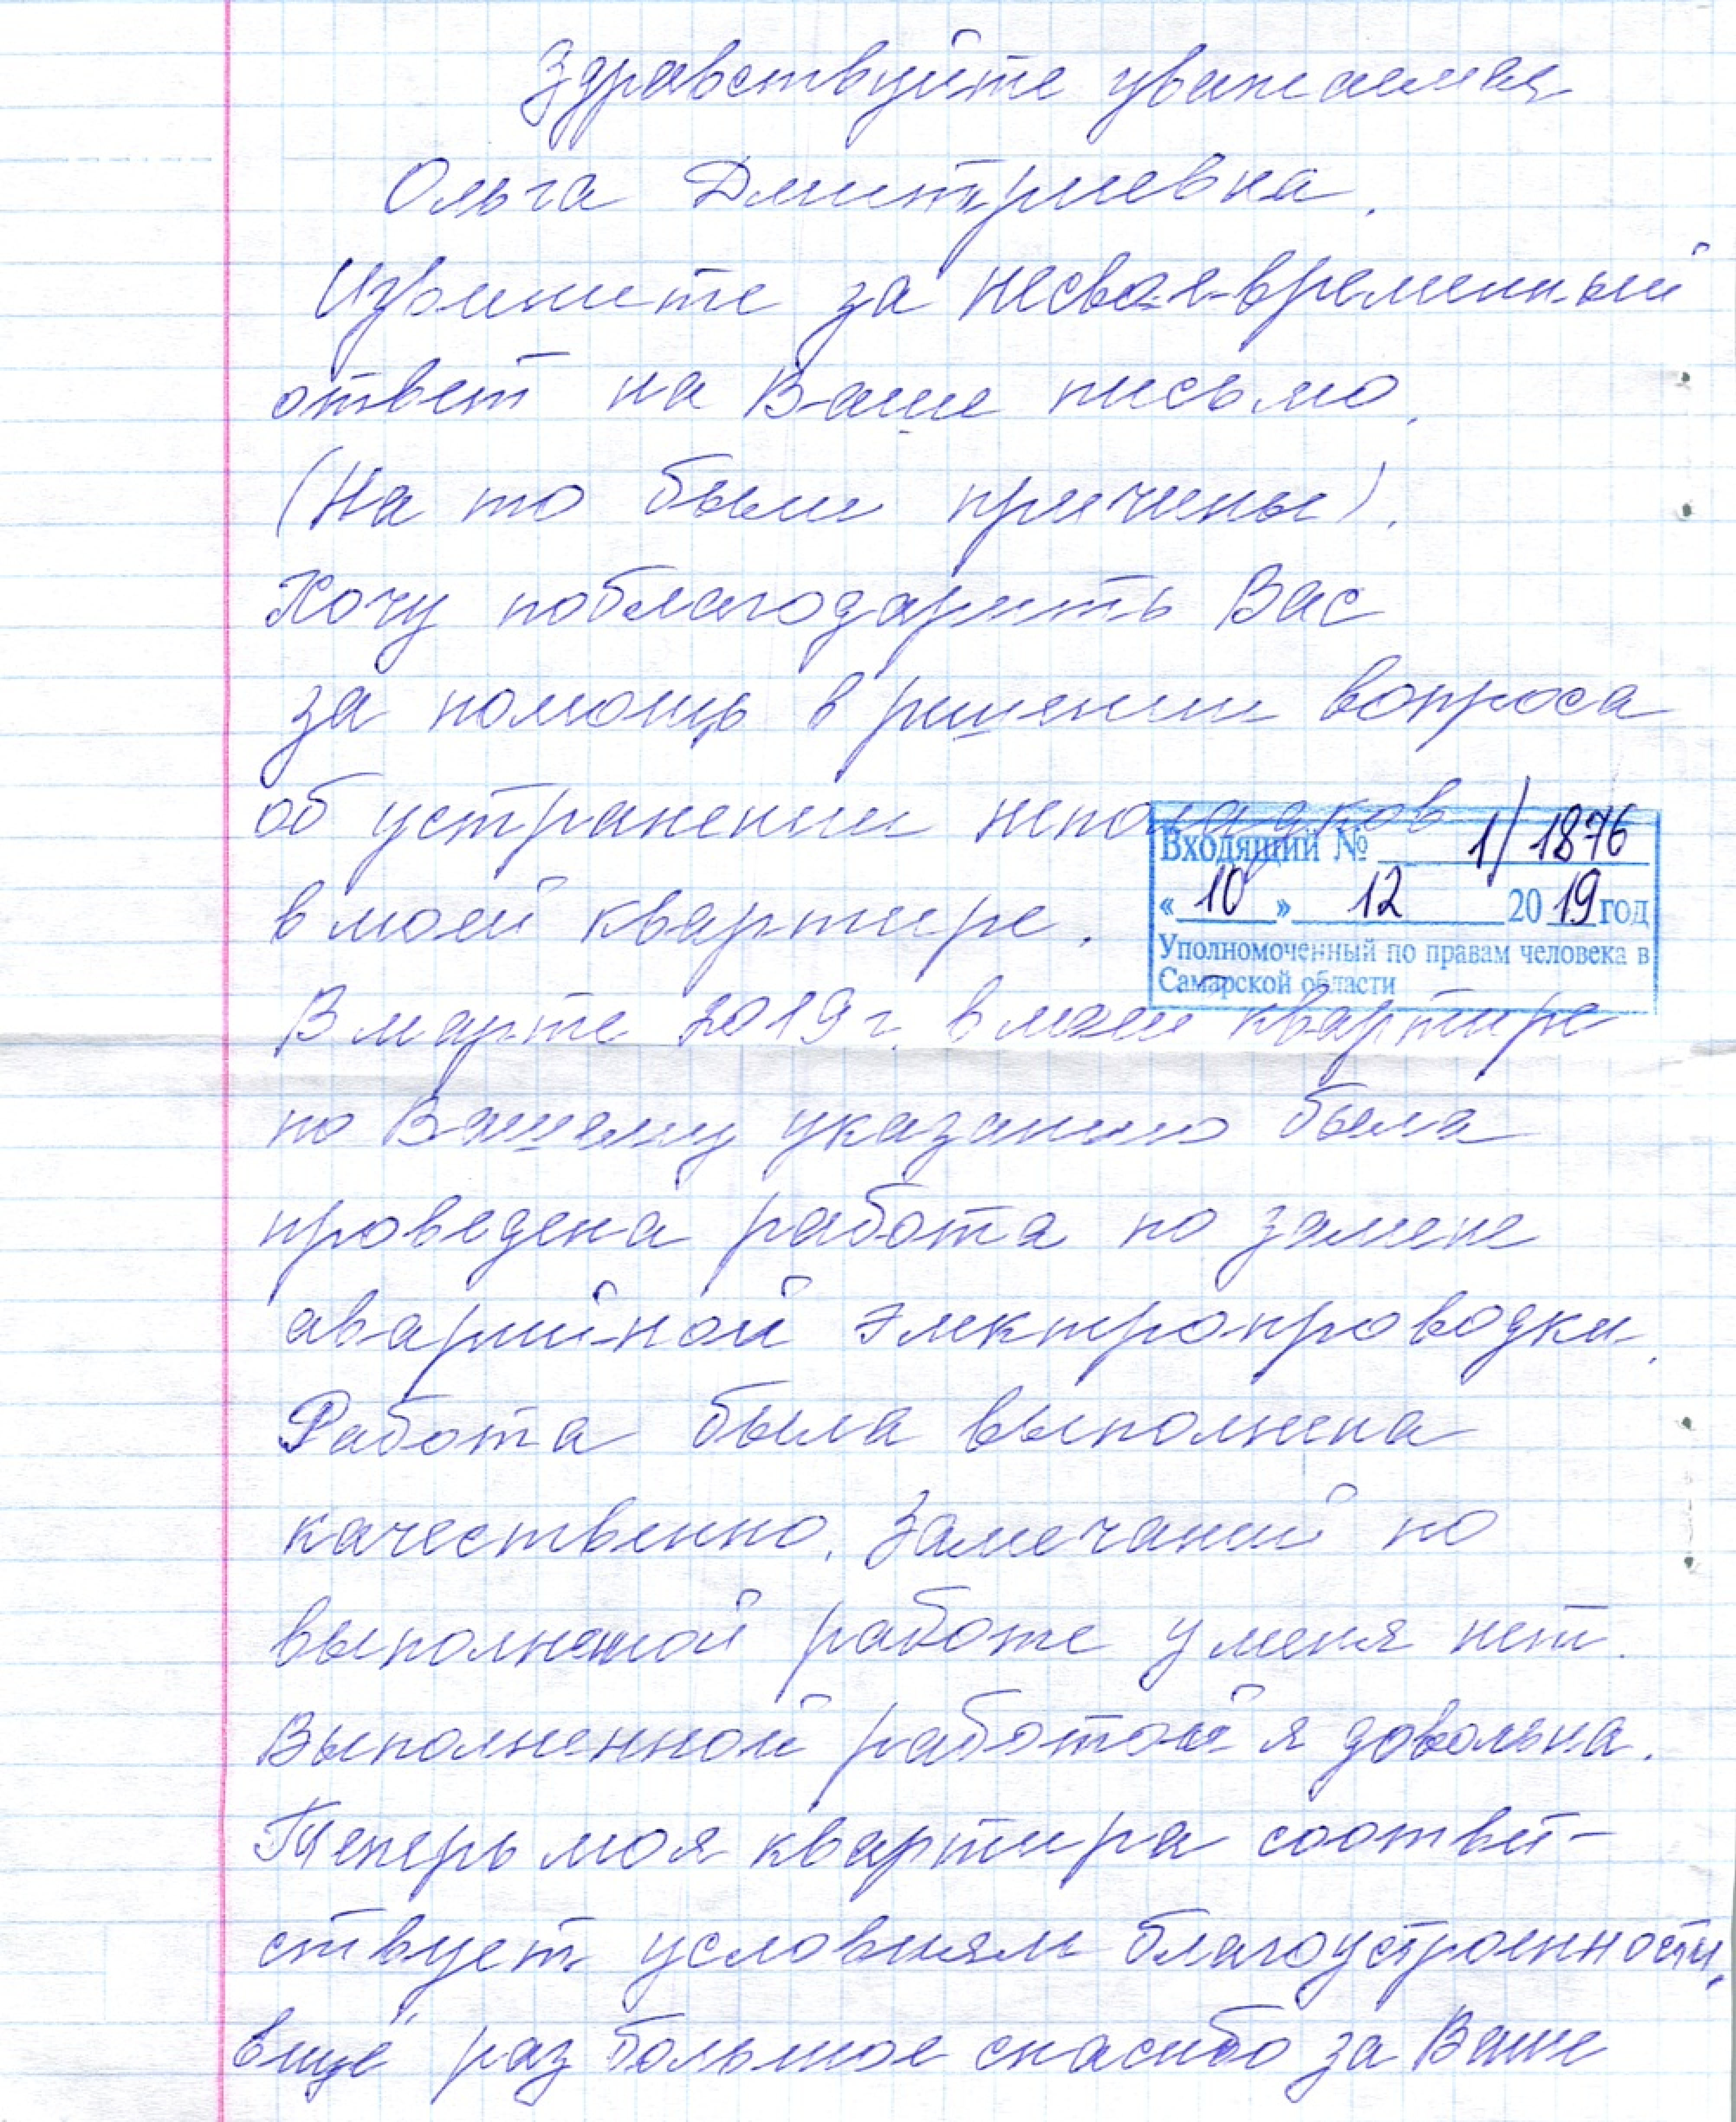 Здравствуйте уважаемая
Ольга Дмитриевна.
Извините за несвоевременный
ответ на Ваше письмо.
(На то были причины).
Хочу поблагодарить Вас
за помощь в решении вопроса
об устранении неполадков
Входящий № 1/1876
«10» 12 2019 год
Уполномоченный по правам человека в
Самарской области
в моей квартире.
В марте 2019 г. в моей квартире
по Вашему указанию была
проведена работа по замене
аварийной электропроводки.
Работа была выполнена
качественно. Замечаний по
выполненой работе у меня нет.
Выполненной работой я довольна.
Теперь моя квартира соответ-
ствует условиям благоустроенности.
Ещё раз большое спасибо за Ваше